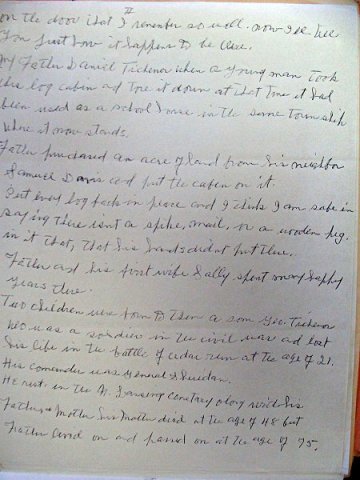 II
on the door that I remember so well. now I'll tell
you just how it happens to be here.
My Father Daniel Tichenor when a young man took
this log cabin and tore it down at that time it had
been used as a school house in the same township
where it now stands.
Father purchased an acre of land from his neighbor
Samuel Davis and put the cabin on it.
Put every log back in peace and I think I am safe in
saying there isnt a spike, nail, or a wooden peg
in it that, that his hands didnt put there.
Father and his first wife Sally spent many happy
years there.
Two children were born to them a son Geo. Tichenor
who was a soldier in the civil war and lost
his life in the battle of cedar run at the age of 21.
His comender was General Sheridan.
He rest. in the N. Lansing cemetary along with his
Father & Mother his Mother died at the age of 48 but
Father lived on and passed on at the age of 75.